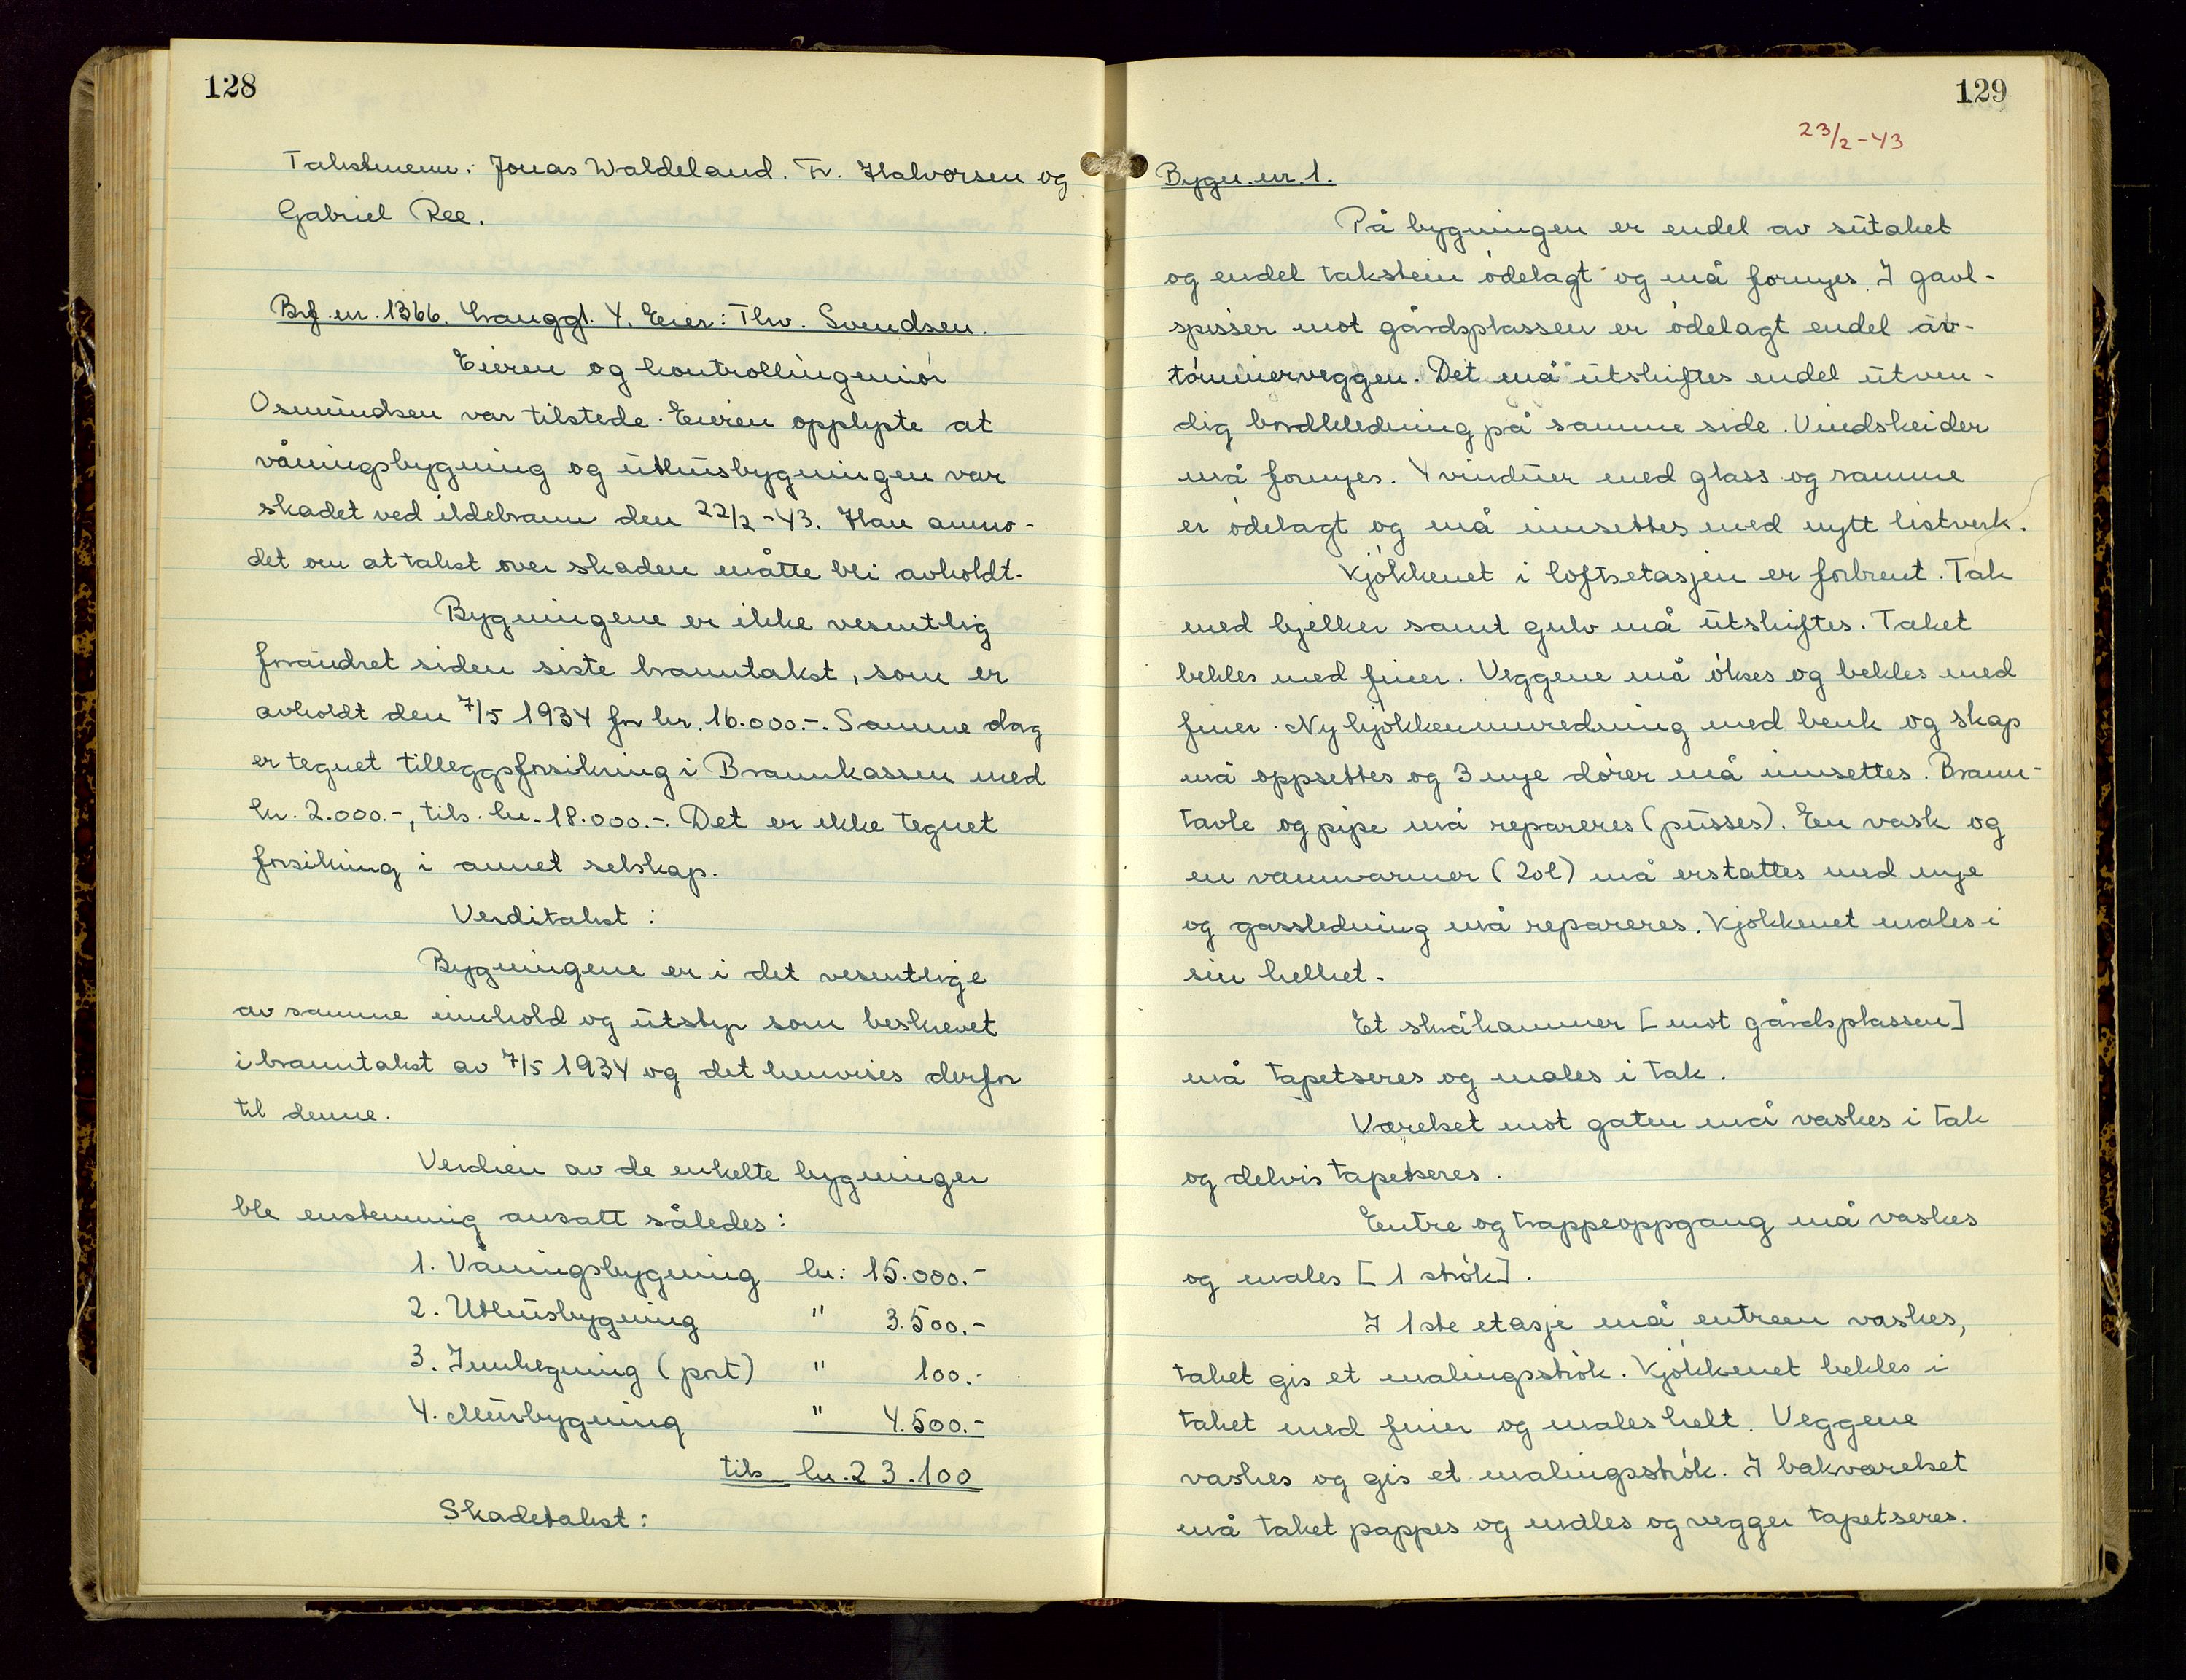 128
Takstmenn: Jonas Waldeland. Tr. Halvorsen og
Gabriel Ree.
Brf. nr. 1366. Langgt. 4. Eier: Thv. Svendsen.
Eieren og kontrollingeniör
Osmundsen var tilstede. Eieren opplyste at
våningsbygning og uthusbygningen var
skadet ved ildebrann den 22/2-43. Han anmo-
det om at takst over skaden måtte bli avholdt.
Bygningene er ikke vesentlig
forandret siden siste branntakst, som er
avholdt den 7/5 1934 for kr. 16.000.-. Samme dag
er tegnet tilleggsforsikring i Brannkassen med
kr. 2.000.-, tils. kr. 18.000.-. Det er ikke tegnet
forsikring i annet selskap.
Verditakst:
Bygningene er i det vesentlige
av samme innhold og utstyr som beskrevet
i branntakst av 7/5 1934 og det henvises derfor
til denne.
Verdien av de enkelte bygninger
ble enstemmig ansatt således:
1. Våningsbygning kr: 15.000.-
2. Uthusbygning " 3.500.-
3. Innhegning (port) " 100.-
4. Murbygning " 4.500.-
tils kr. 23.100
Skadetakst:
129
23/2-43
Bygn. nr. 1.
På bygningen er endel av sutaket
og endel takstein ödelagt og må fornyes. I gavl-
spisser mot gårdsplassen er ödelagt endel av-
tömmerveggen. Det må utskiftes endel utven-
dig bordkledning på samme side. Vindskeider
må fornyes. 4 vinduer med glass og ramme
er ödelagt og må innsettes med nytt listverk.
Kjökkenet i loftsetasjen er forbrent. Tak
med bjelker samt gulv må utskiftes. Taket
bekles med finer. Veggene må ökses og bekles med
finer. Ny kjökkeninnredning med benk og skap
må oppsettes og 3 nye dörer må innsettes. Brann-
tavle og pipe må repareres (pusses). En vask og
en vannvarmer (20l) må erstattes med nye
og gassledning må repareres. Kjökkenet males i
sin helhet.
Et skråkammer [mot gårdsplassen]
må tapetseres og males i tak.
Værelset mot gaten må vaskes i tak
og delvis tapetseres.
Entre og trappeoppgang må vaskes
og males [1 strök].
I 1ste etasje må entreen vaskes,
taket gis et malingsströk. Kjökkenet bekles i
taket med finer og males helt. Veggene
vaskes og gis et malingsströk. I bakværelset
må taket pappes og males og vegger tapetseres.